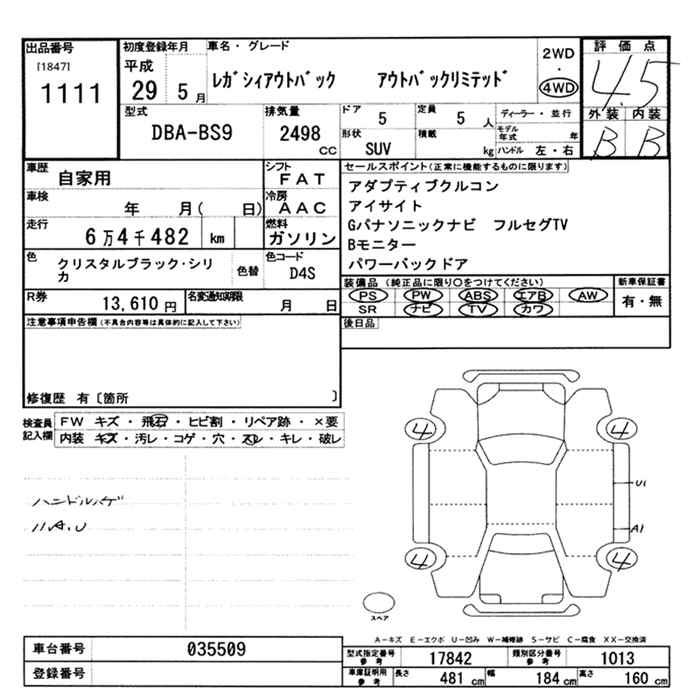 出品番号
[1847]
1111
初度登録年月
平成
29 5 月
車名・グレード
レガシィアウトバック アウトバックリミテッド
2WD
・
4WD
評価点
4.5
外装 内装
B B
型式
DBA-BS9
排気量
2498
CC
ドア
5
定員
5 人
ディーラー・並行
形状
SUV
積載
kg
モデル年式 年
ハンドル 左・右
車歴
自家用
シフト
FAT
車検
年 月( 日)
冷房
AAC
走行
6万4千482 km
燃料
ガソリン
色
クリスタルブラック・シリカ
色替
色コード
D4S
R券
13,610 円
名変通知期限
月 日
セールスポイント(正常に機能するものに限ります)
アダプティブクルコン
アイサイト
Gパナソニックナビ フルセグTV
Bモニター
パワーバックドア
装備品 (純正品に限り〇をつけてください)
PS PW ABS エアB AW
SR ナビ TV カワ
新車保証書
有・無
後日品
注意事項申告欄(不具合内容等は具体的に記入して下さい)
修復歴 有〔箇所 〕
検査員
記入欄
FW キズ・飛石・ヒビ割・リペア跡・×要
内装 キズ・汚レ・コゲ・穴・スレ・キレ・破レ
ハンドルハゲ
ハA.U
4 4
U1
A1
4 4
スペア
A-キズ E-エクボ U-凹み W-補修跡 S-サビ C-腐食 XX-交換済
車台番号
035509
登録番号
型式指定番号
参考
17842
類別区分番号
参考
1013
車庫証明用
参考
長さ 481 cm
幅 184 cm
高さ 160 cm